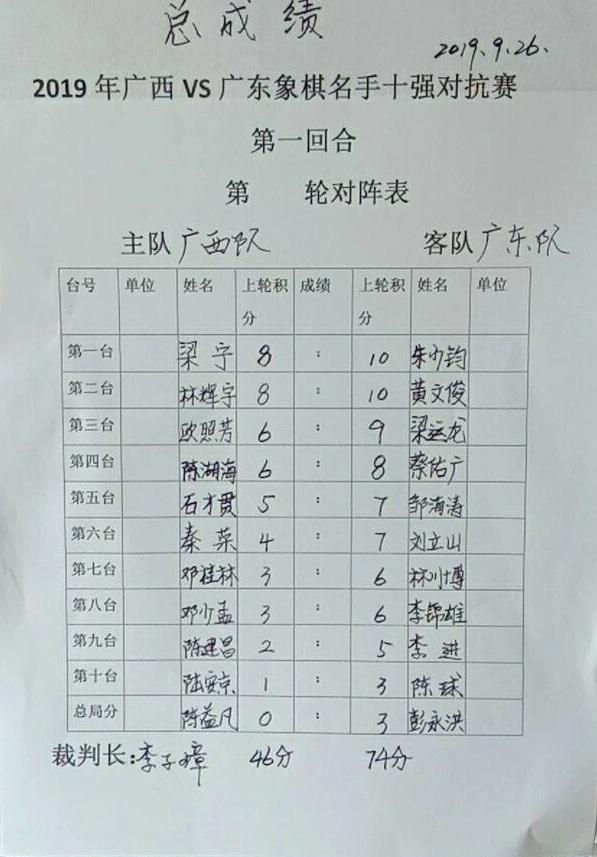 总成绩
2019.9.26.
2019年广西VS广东象棋名手十强对抗赛
第一回合
第 轮对阵表
主队广西队 客队广东队
台号 单位 姓名 上轮积分 成绩 上轮积分 姓名 单位
第一台 梁宁 8 : 10 朱少钧
第二台 林辉宇 8 : 10 黄文俊
第三台 欧照芳 6 : 9 梁运龙
第四台 陈湖海 6 : 8 蔡佑广
第五台 石才贯 5 : 7 邹海涛
第六台 秦荣 4 : 7 刘立山
第七台 邓桂林 3 : 6 林川博
第八台 邓少孟 3 : 6 李锦雄
第九台 陈建昌 2 : 5 李进
第十台 陆安京 1 : 3 陈球
总局分 陈益凡 0 : 3 彭永洪
裁判长:李子璋 46分 74分